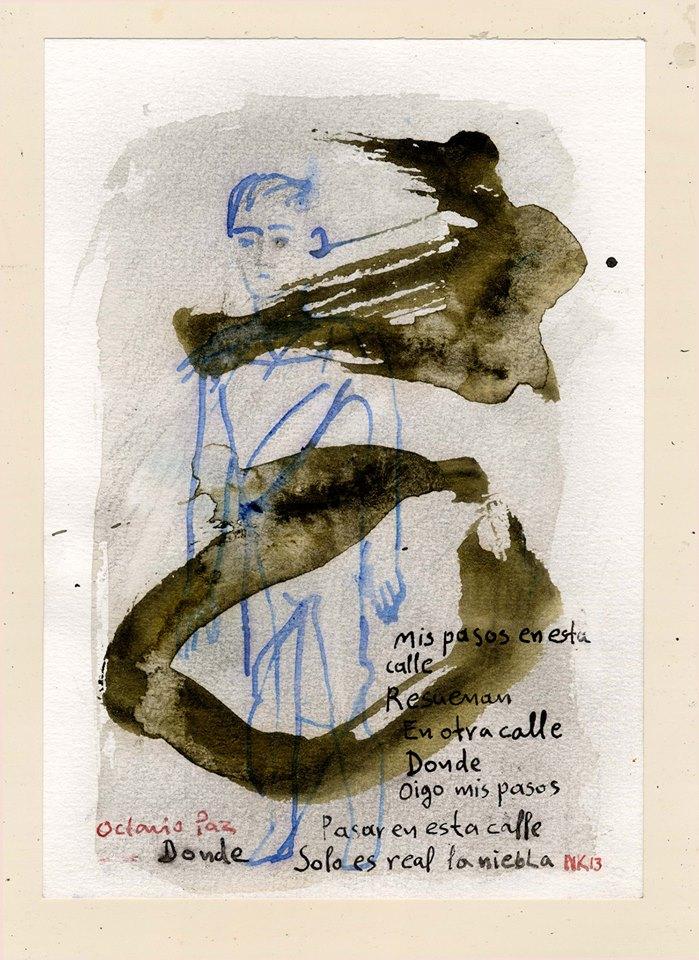 Mis pasos en esta
calle
Resuenan
En otra calle
Donde
Oigo mis pasos
Pasar en esta calle
Donde
Solo es real la niebla
Octavio Paz
NK13